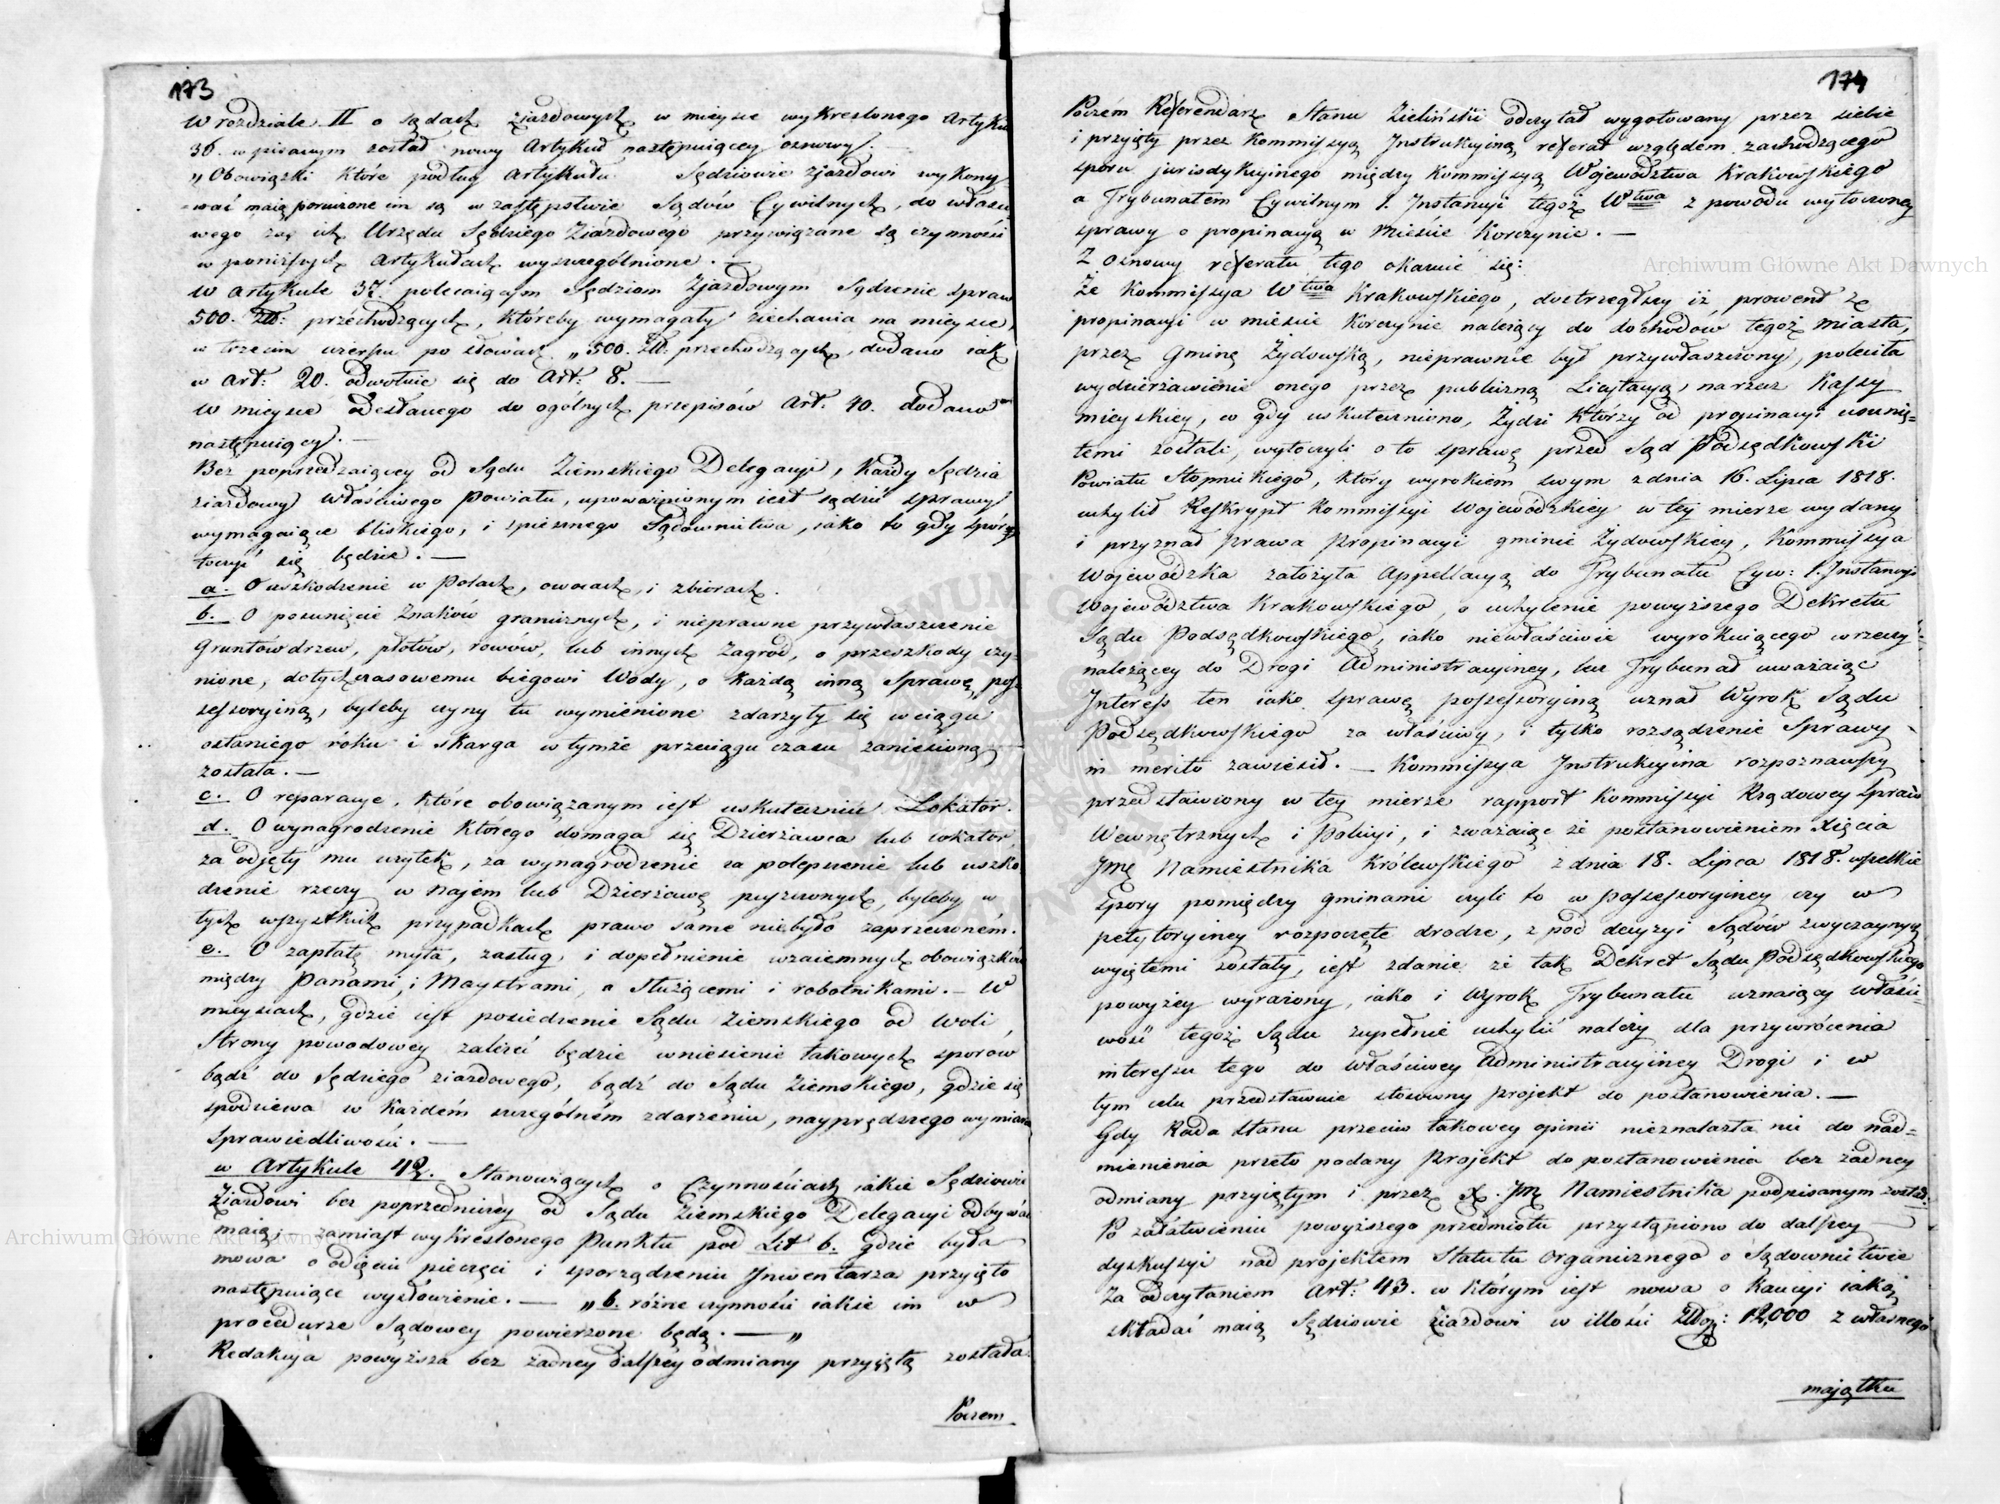 173
W rozdziale II o sądach zjazdowych w mieysce wykreslonego Artykułu
36. wpisanym został nowy Artykuł następuiącey osnowy. —
„Obowiązki które podług Artykułu Sędziowie zjazdowi wykony-
wać maią poruczone im są w zastępstwie Sądów Cywilnych, do właści-
wego zaś ich Urzędu Sędziego Ziazdowego przywiązane są czynności
w poniższych Artykułach wyszczególnione. —
W Artykule 37. polecaiącym Sędziom Zjazdowym Sądzenie spraw
500. Zł: przechodzących, któreby wymagały ziechania na mieysce,
w trzecim wierszu po słowach „500. Zł. przechodzących, dodano iak
w art: 20. odwołnie się do Art: 8. —
W mieysce odesłanego do ogólnych przepisów Art. 40. dodano
następuiący. —
Bez poprzedzaiącey od Sądu Ziemskiego Delegacyi, Każdy Sędzia
ziazdowy właściwego Powiatu, upoważnionym iest sądzić sprawy
wymagaiące bliskiego, i spiesznego Sądownictwa, iako to gdy spór
toczyć się będzie. —
a. O uszkodzenie w Polach, owocach, i zbiorach.
b. O posunięcie Znaków granicznych, i nieprawne przywłaszczenie
Gruntów drzew, płotów, rowów, lub innych Zagród, o przeszkody czy-
nione, dotychczasowemu biegowi Wody, o Każdą inną Sprawę pos-
sessoryiną, byleby czyny tu wymienione zdarzyły się w ciągu
ostatniego roku i skarga w tymże przeciągu czasu zaniesioną
została. —
c. O reparacye, które obowiązanym iest uskutecznić Lokator.
d. O wynagrodzenie Którego domaga się Dzierżawca lub lokator,
za odjęty mu użytek, za wynagrodzenie za polepszenie lub uszko-
dzenie rzeczy w Najem lub Dzierżawę puszczonych, byleby w
tych wszystkich przypadkach prawo same niebyło zaprzeczoném.
e. O zapłatę myta, zasług, i dopełnienie wzaiemnych obowiązków
między Panami, i Maystrami, a służącemi i robotnikami. — W
mieyscach, gdzie iest posiedzenie Sądu Ziemskiego od Woli,
Strony powodowey zależeć będzie wniesienie takowych sporów
bądź do Sędziego ziazdowego, bądź do Sądu Ziemskiego, gdzie się
spodziewa w Każdém szczególném zdarzeniu, nayprędszego wymiaru
Sprawiedliwości. —
w Artykule 42. Stanowiących o Czynnościach iakie Sędziowie
Ziazdowi bez poprzedniczéy od Sądu Ziemskiego Delegacyi odbywać
maią, zamiast wykreslonego Punktu pod Lit b. gdzie była
mowa o odięciu pieczęci i sporządzeniu Inwentarza przyięto
następuiące wysłowienie. — „b. różne czynności iakie im w
procedurze Sądowey powierzone będą. — „
Redakcyia powyższa bez żadney dalszey odmiany przyiętą została.
Poczem
174
Poczém Referendarz Stanu Zieliński odczytał wygotowany przez siebie
i przyięty przez Kommissyą Instrukcyiną referat względem zachodzącego
sporu jurisdykcyinego między Kommissyą Województwa Krakowskiego
a Trybunałem Cywilnym I. Instancyi tegoż Wtwa z powodu wytoczoney
sprawy o propinacyą w Mieście Korczynie. —
Z osnowy referatu tego okazuie się:
Że Kommissya Wtwa Krakowskiego, dostrzegłszy iż prowent z
propinacyi w mieście Korczynie należący do dochodów tegoż Miasta,
przez Gminę Żydowską, nieprawnie był przywłaszczony, poleciła
wydzierżawienie onego przez publiczną Licytacyą, na rzecz Kassy
mieyskiey, co gdy uskuteczniono, Żydzi Którzy od propinacyi usunię-
temi zostali, wytoczyli o to sprawę przed Sąd Podsędkowski
Powiatu Stopnickiego, który wyrokiem swym z dnia 16. Lipca 1818.
uchylił Reskrypt Kommissyi Wojewódzkiey w tey mierze wydany
i przyznał prawa Propinacyi gminie Żydowskiey, Kommissya
Wojewódzka założyła Appellacyą do Trybunału Cyw: I. Instancyi
Województwa Krakowskiego, o uchylenie powyższego Dekretu
Sądu Podsędkowskiego, iako niewłaściwie wyrokuiącego w rzeczy
należącey do Drogi Administracyiney, lecz Trybunał uważaiąc
Interess ten iako sprawę possessoryiną uznał Wyrok Sądu
Podsędkowskiego za właściwy, i tylko rozsądzenie Sprawy
in merito zawiesił. — Kommissya Instrukcyina rozpoznawszy
przedstawiony w tey mierze rapport Kommissyi Rządowey Spraw
Wewnętrznych i Policyi, i zważaiąc że postanowieniem Xięcia
Jmę Namiestnika Królewskiego z dnia 18. Lipca 1818. wszelkie
Spory pomiędzy gminami czyli to w Possessoryiney czy w
petytoryiney rozpoczęte drodze, z pod decyzyi Sądów zwyczaynych
wyiętemi zostały, iest zdanie że tak Dekret Sądu Podsędkowskiego
powyżey wyrażony, iako i Wyrok Trybunału uznaiący właści-
wość tegoż Sądu zupełnie uchylić należy dla przywrócenia
interessu tego do właściwey Administracyiney Drogi i w
tym celu przedstawuie stosowny Projekt do postanowienia. —
Gdy Rada Stanu przeciw takowey opinii nieznalazła nic do nad-
mienienia przeto podany Projekt do postanowienia bez żadney
odmiany przyiętym i przez X. Jmę Namiestnika podpisanym został.
Po załatwieniu powyższego przedmiotu przystąpiono do dalszey
dyskussyi nad projektem Statutu Organicznego o Sądownictwie
Za odczytaniem Art: 43. w którym iest mowa o Kaucyi iaką
składać maią Sędziowie ziazdowi w ilości Złop: 12,000 z własnego
majątku
Archiwum Główne Akt Dawnych
Archiwum Główne Akt Dawnych